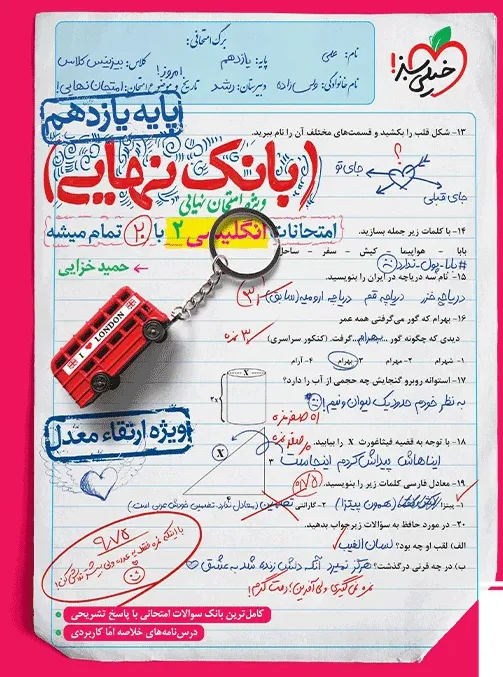 برگ امتحانی:
نام: علی
پایه: یازدهم
کلاس: بیزینس کلاس
نام خانوادگی: ولی زاده
دبیرستان: رشد
تاریخ و موضوع امتحان: امتحان نهایی!
امروز!
خیلی سبز!
پایه یازدهم
(بانک نهایی)
ویژه امتحان نهایی
امتحانات انگلیسی ۲ با ۲۰ تمام میشه
حمید خزایی
I ❤ LONDON
ویژه ارتقاء معدل
۱۳- شکل قلب را بکشید و قسمت‌های مختلف آن را نام ببرید.
؟
جای تو
جای قبلی
۱۴- با کلمات زیر جمله بسازید.
بابا - هواپیما - کیش - سفر - ساحل
#بابا-پول-ندارد
۱۵- نام سه دریاچه در ایران را بنویسید.
دریاچه خزر دریاچه قم دریاچه ارومیه (سابق)
۱۶- بهرام که گور می‌گرفتی همه عمر
دیدی که چگونه گور ...بهرام... گرفت. (کنکور سراسری)
۱- شهرام ۲- مهرام ۳- بهرام ۴- آرام
۱۷- استوانه روبرو گنجایش چه حجمی از آب را دارد؟
X
۲x
به نظر خودم حدود یک لیوان و نیم!
۱۸- با توجه به قضیه فیثاغورث X را بیابید.
X
۳
۴
ایناهاش پیداش کردم اینجاست
۱۹- معادل فارسی کلمات زیر را بنویسید.
۱- پیتزا (همون پیتزا) ۲- گارانتی تضمین
۲۰- در مورد حافظ به سؤالات زیر جواب بدهید.
الف) لقب او چه بود؟ لسان الغیب
ب) در چه قرنی درگذشت؟ هرگز نمیرد آنکه دلش زنده شد به عشق
کامل‌ترین بانک سوالات امتحانی با پاسخ تشریحی
درس‌نامه‌های خلاصه امّا کاربردی